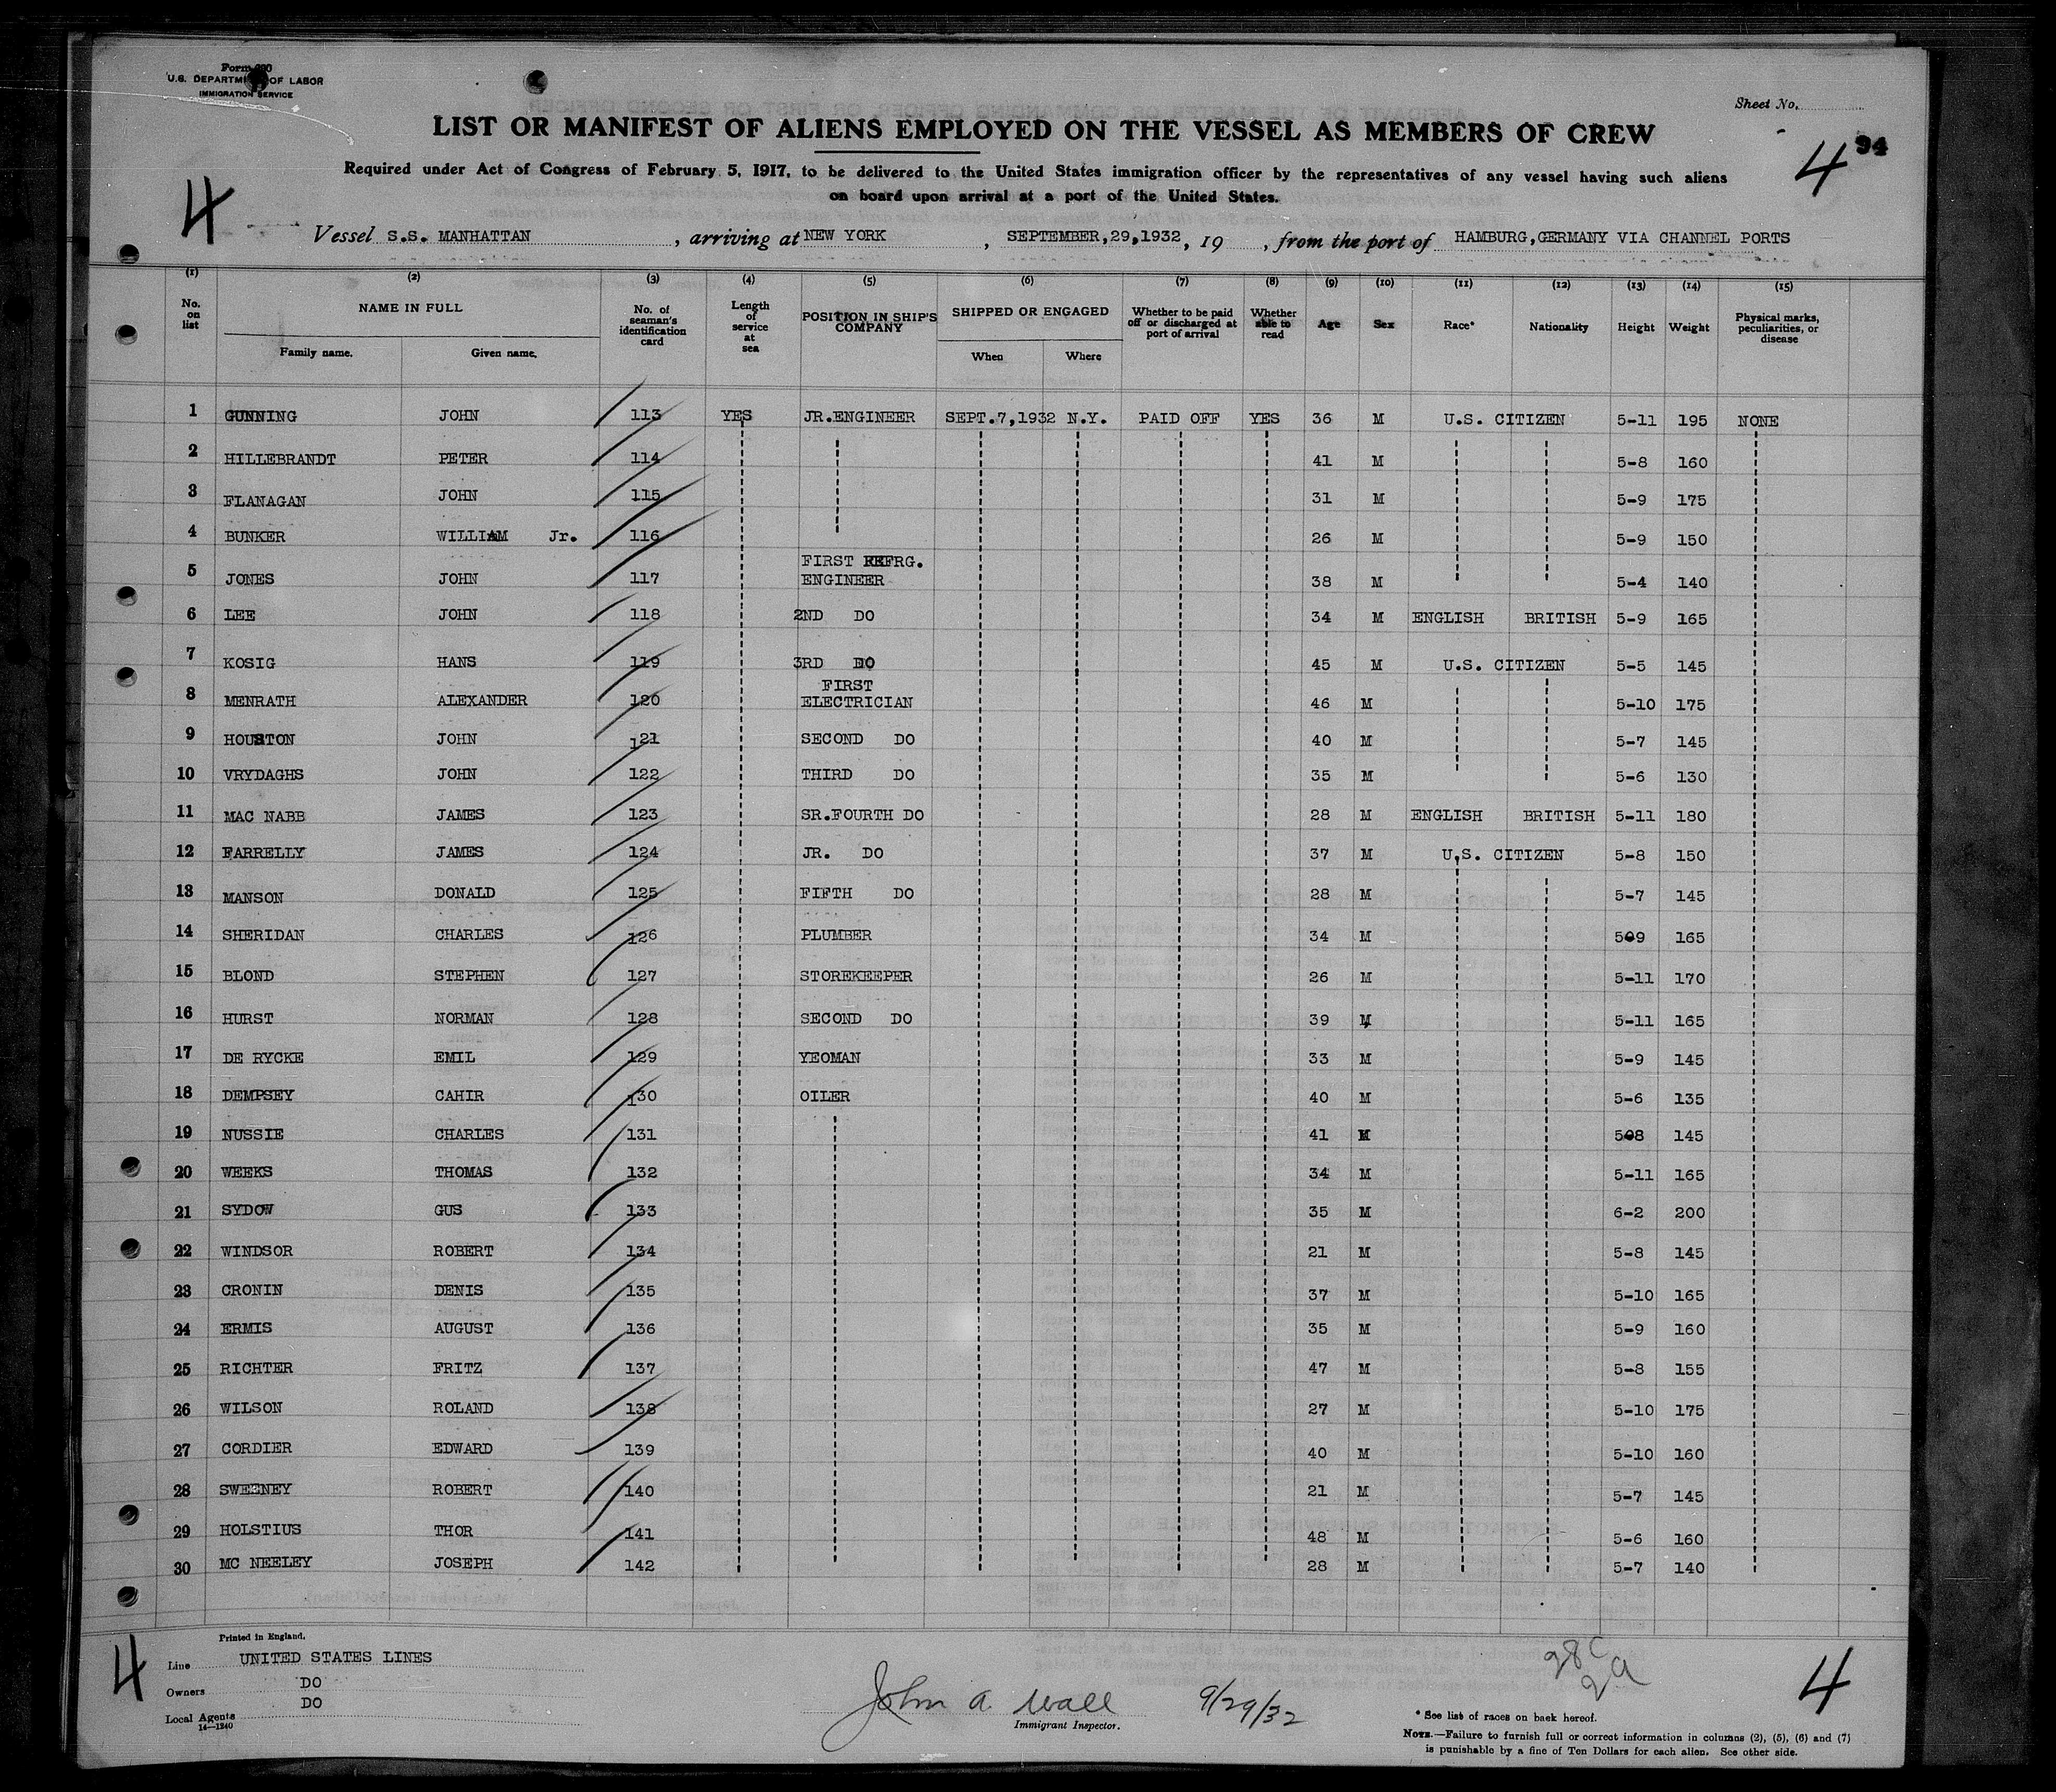 Form 680
U.S. DEPARTMENT OF LABOR
IMMIGRATION SERVICE
Sheet No.
LIST OR MANIFEST OF ALIENS EMPLOYED ON THE VESSEL AS MEMBERS OF CREW
4 94
Required under Act of Congress of February 5, 1917, to be delivered to the United States immigration officer by the representatives of any vessel having such aliens
on board upon arrival at a port of the United States.
4
Vessel S.S. MANHATTAN, arriving at NEW YORK, SEPTEMBER,29,1932, 19 , from the port of HAMBURG,GERMANY VIA CHANNEL PORTS
(1) (2) (3) (4) (5) (6) (7) (8) (9) (10) (11) (12) (13) (14) (15)
No. on list NAME IN FULL Family name. Given name. No. of seaman's identification card Length of service at sea POSITION IN SHIP'S COMPANY SHIPPED OR ENGAGED When Where Whether to be paid off or discharged at port of arrival Whether able to read Age Sex Race* Nationality Height Weight Physical marks, peculiarities, or disease
1 GUNNING JOHN 113 YES JR.ENGINEER SEPT.7,1932 N.Y. PAID OFF YES 36 M U.S. CITIZEN 5-11 195 NONE
2 HILLEBRANDT PETER 114 41 M 5-8 160
3 FLANAGAN JOHN 115 31 M 5-9 175
4 BUNKER WILLIAM Jr. 116 26 M 5-9 150
5 JONES JOHN 117 FIRST REFRG. ENGINEER 38 M 5-4 140
6 LEE JOHN 118 2ND DO 34 M ENGLISH BRITISH 5-9 165
7 KOSIG HANS 119 3RD DO 45 M U.S. CITIZEN 5-5 145
8 MENRATH ALEXANDER 120 FIRST ELECTRICIAN 46 M 5-10 175
9 HOUSTON JOHN 121 SECOND DO 40 M 5-7 145
10 VRYDAGHS JOHN 122 THIRD DO 35 M 5-6 130
11 MAC NABB JAMES 123 SR.FOURTH DO 28 M ENGLISH BRITISH 5-11 180
12 FARRELLY JAMES 124 JR. DO 37 M U.S. CITIZEN 5-8 150
13 MANSON DONALD 125 FIFTH DO 28 M 5-7 145
14 SHERIDAN CHARLES 126 PLUMBER 34 M 5-9 165
15 BLOND STEPHEN 127 STOREKEEPER 26 M 5-11 170
16 HURST NORMAN 128 SECOND DO 39 M 5-11 165
17 DE RYCKE EMIL 129 YEOMAN 33 M 5-9 145
18 DEMPSEY CAHIR 130 OILER 40 M 5-6 135
19 NUSSIE CHARLES 131 41 M 5-8 145
20 WEEKS THOMAS 132 34 M 5-11 165
21 SYDOW GUS 133 35 M 6-2 200
22 WINDSOR ROBERT 134 21 M 5-8 145
23 CRONIN DENIS 135 37 M 5-10 165
24 ERMIS AUGUST 136 35 M 5-9 160
25 RICHTER FRITZ 137 47 M 5-8 155
26 WILSON ROLAND 138 27 M 5-10 175
27 CORDIER EDWARD 139 40 M 5-10 160
28 SWEENEY ROBERT 140 21 M 5-7 145
29 HOLSTIUS THOR 141 48 M 5-6 160
30 MC NEELEY JOSEPH 142 28 M 5-7 140
Printed in England.
4
Line UNITED STATES LINES
Owners DO
Local Agents DO
14—1240
John A. Wall 9/29/32
Immigrant Inspector.
28 C
2 a
4
* See list of races on back hereof.
NOTE.—Failure to furnish full or correct information in columns (2), (5), (6) and (7)
is punishable by a fine of Ten Dollars for each alien. See other side.